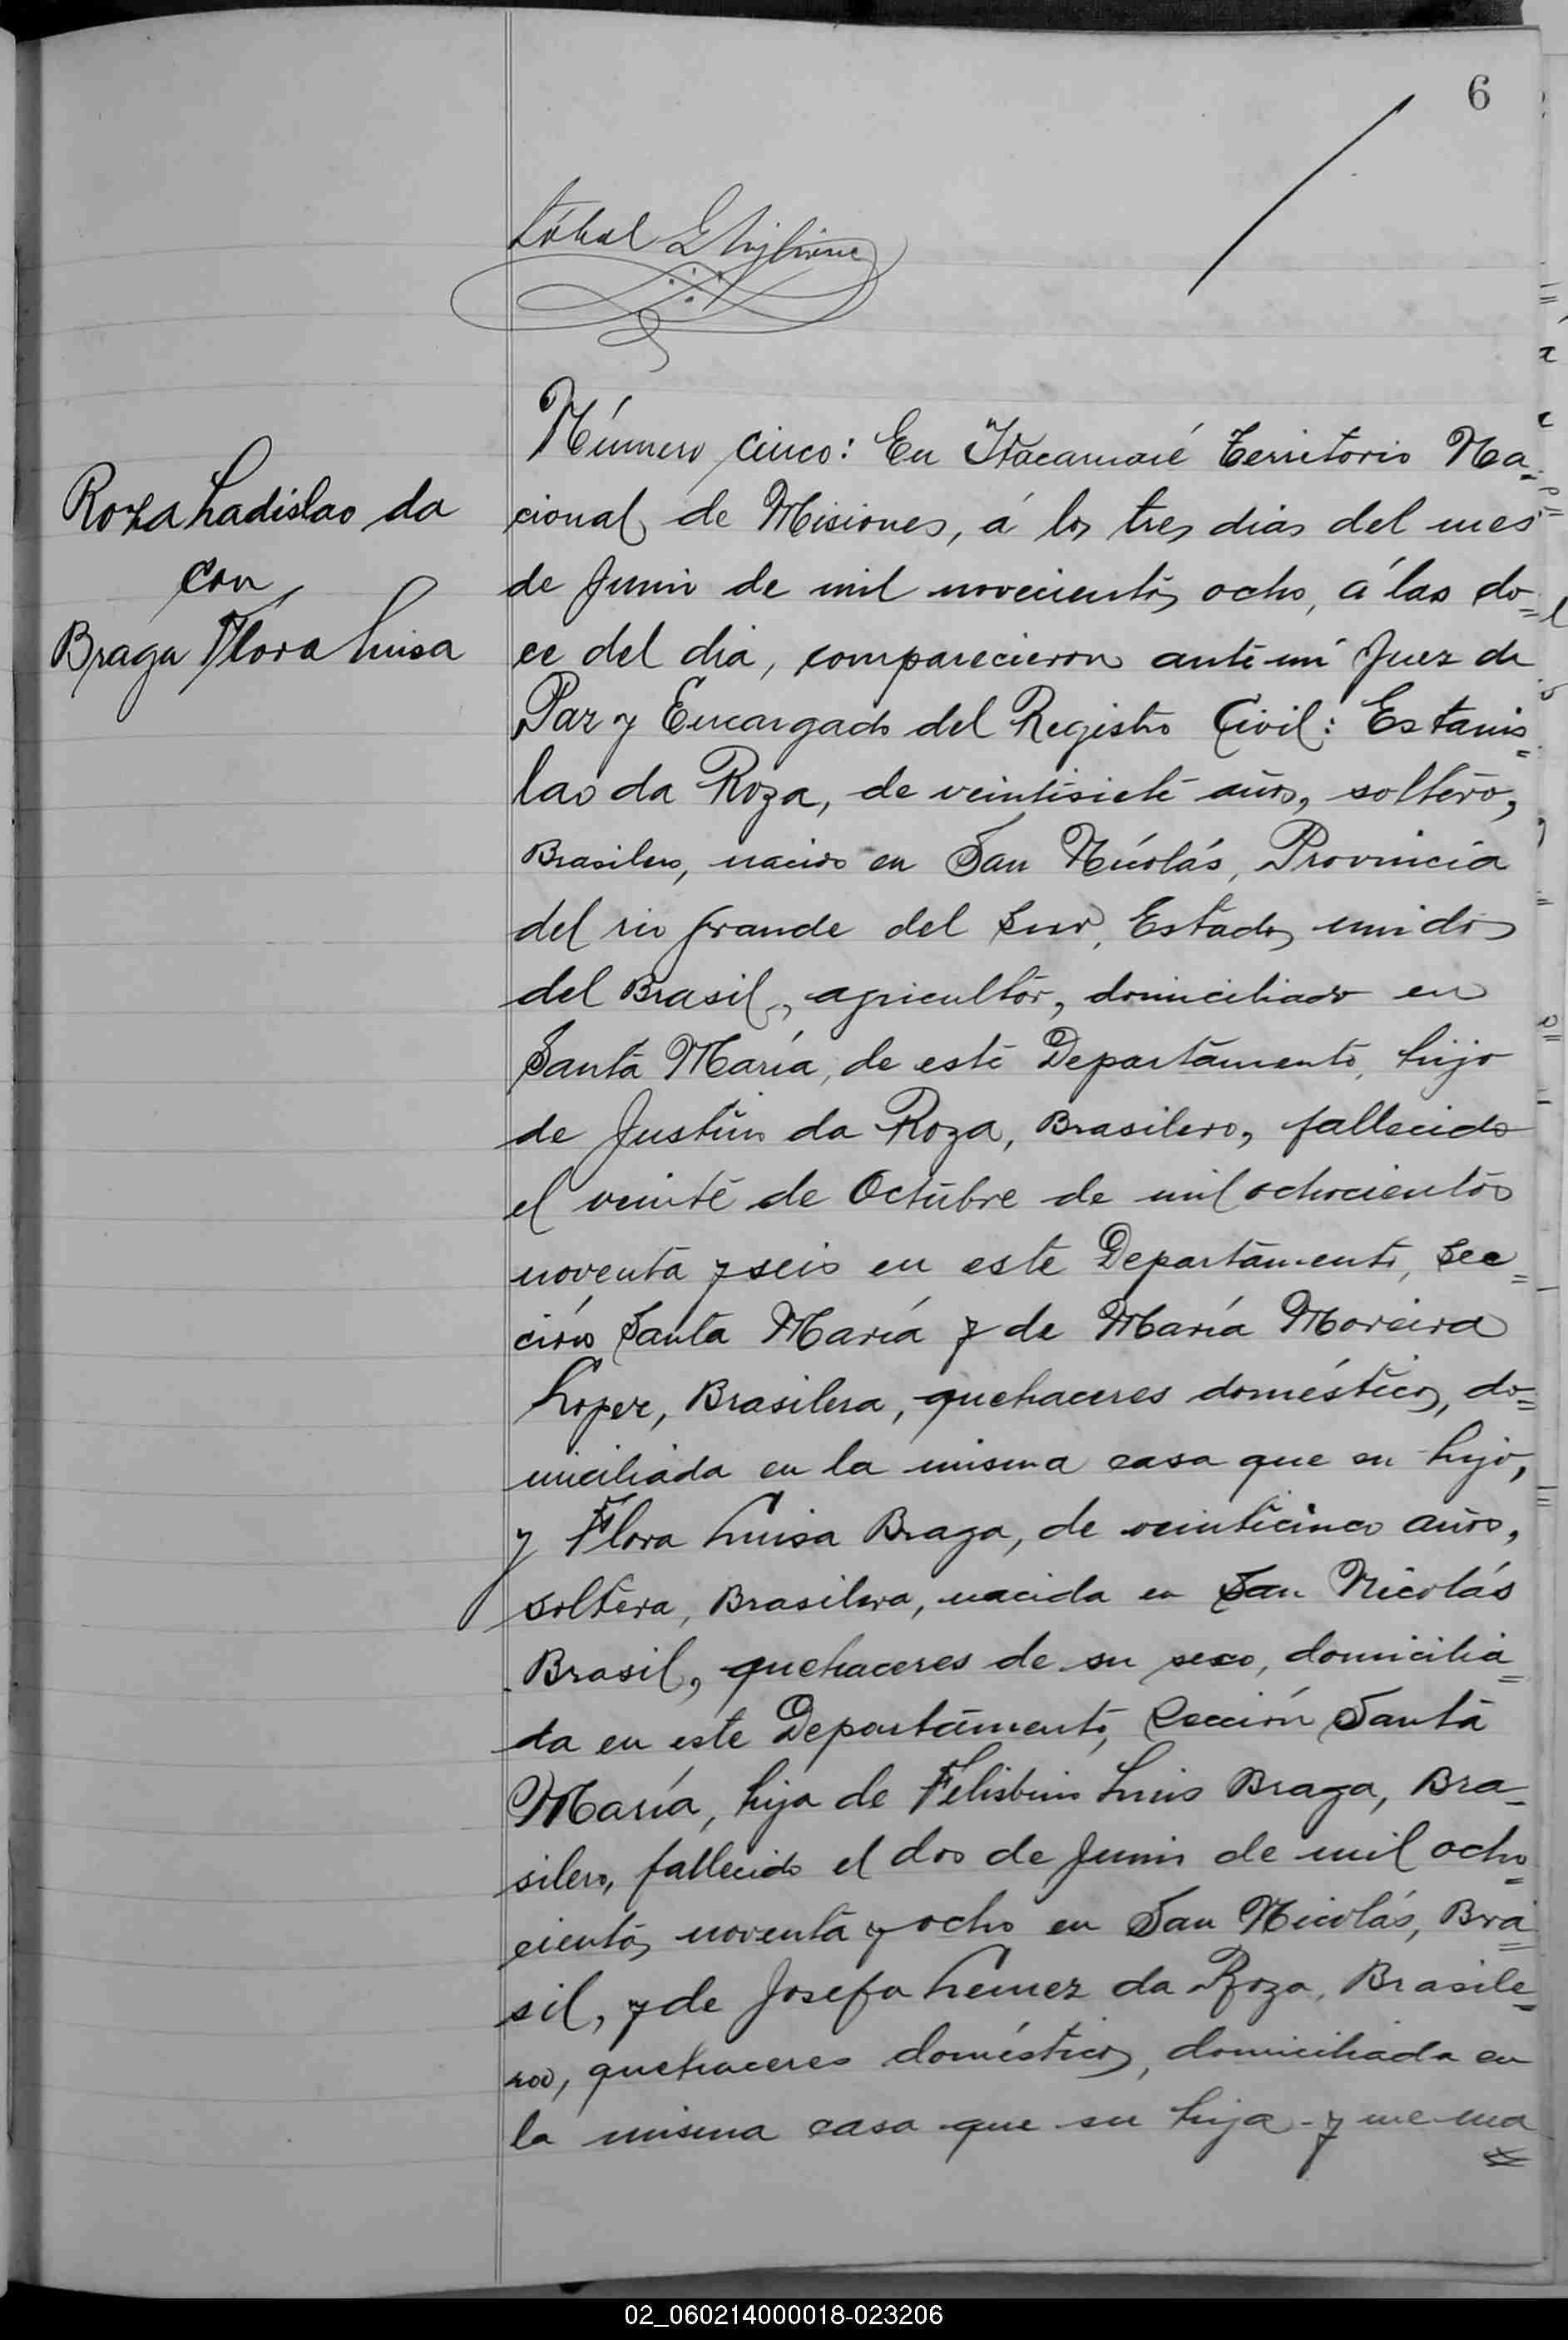 6
Roza Ladislao da
con
Braga Flora Luisa
Número cinco: En Itacaruaré Territorio Na-
cional de Misiones, á los tres dias del mes
de Junio de mil novecientos ocho, á las do=
ce del dia, comparecieron ante mi Juez de
Paz y Encargado del Registro Civil: Estanis=
lao da Roza, de veintisiete años, soltero,
Brasilero, nacido en San Nicolás, Provincia
del rio grande del Sur, Estados unidos
del Brasil, agricultor, domiciliado en
Santa María, de este Departamento, hijo
de Justino da Roza, Brasilero, fallecido
el veinte de Octubre de mil ochocientos
noventa y seis en este Departamento, Sec=
ción Santa María y de María Moreira
Lopez, Brasilera, quehaceres domésticos, do=
miciliada en la misma casa que su hijo,
y Flora Luisa Braga, de veinticinco años,
soltera, Brasilera, nacida en San Nicolás
Brasil, quehaceres de su sexo, domicilia=
da en este Departamento, Sección Santa
María, hija de Felisbino Luis Braga, Bra-
silero, fallecido el dos de Junio de mil ocho=
cientos noventa y ocho en San Nicolás, Bra=
sil, y de Josefa Lemez da Roza, Brasile=
ra, quehaceres domésticos, domiciliada en
la misma casa que su hija y me ma
02_060214000018-023206